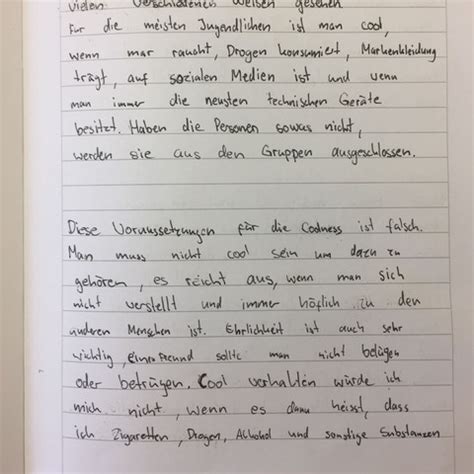 vielen verschiedenen Weisen gesehen
Für die meisten Jugendlichen ist man cool,
wenn mar raucht, Drogen konsumiert, Markenkleidung
trägt, auf sozialen Medien ist und wenn
man immer die neusten technischen Geräte
besitzt. Haben die Personen sowas nicht,
werden sie aus den Gruppen ausgeschlossen.
Diese Voraussetzungen für die Coolness ist falsch.
Man muss nicht cool sein um dazu zu
gehören, es reicht aus, wenn man sich
nicht verstellt und immer höflich zu den
anderen Menschen ist. Ehrlichkeit ist auch sehr
wichtig, einen Freund sollte man nicht belügen
oder betrügen. Cool verhalten würde ich
mich nicht, wenn es dann heisst, dass
ich Zigaretten, Drogen, Alkohol und sonstige Substanzen